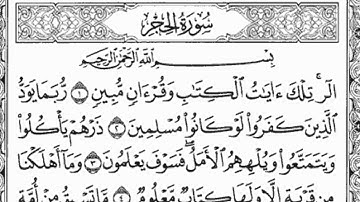 سُورَةُ الحِجْرِ
بِسْمِ اللَّهِ الرَّحْمَٰنِ الرَّحِيمِ
الٓرۚ تِلْكَ ءَايَٰتُ ٱلْكِتَٰبِ وَقُرْءَانٍ مُّبِينٍ ١ رُّبَمَا يَوَدُّ
ٱلَّذِينَ كَفَرُوا۟ لَوْ كَانُوا۟ مُسْلِمِينَ ٢ ذَرْهُمْ يَأْكُلُوا۟
وَيَتَمَتَّعُوا۟ وَيُلْهِهِمُ ٱلْأَمَلُ ۖ فَسَوْفَ يَعْلَمُونَ ٣ وَمَآ أَهْلَكْنَا
مِن قَرْيَةٍ إِلَّا وَلَهَا كِتَابٌ مَّعْلُومٌ ٤ مَّا تَسْبِقُ مِنْ أُمَّةٍ